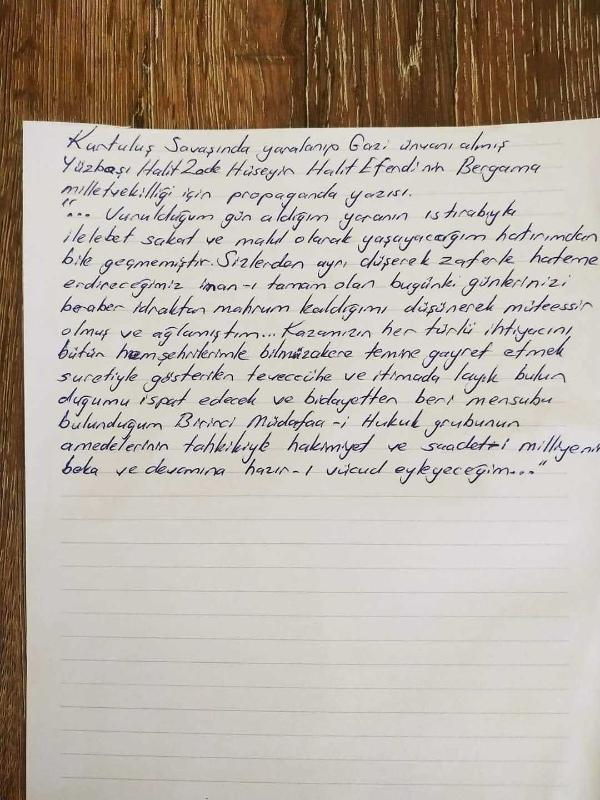 Kurtuluş Savaşında yaralanıp Gazi ünvanı almış
Yüzbaşı Halit Zade Hüseyin Halit Efendi'nin Bergama
milletvekilliği için propaganda yazısı.
"... Vurulduğum gün aldığım yaranın ıstırabıyla
ilelebet sakat ve malul olarak yaşayacağım hatırımdan
bile geçmemiştir. Sizlerden ayrı düşerek zaferle hateme
erdireceğimiz iman-ı tamam olan bugünki günlerinizi
beraber idraktan mahrum kaldığımı düşünerek müteessir
olmuş ve ağlamıştım... Kazamızın her türlü ihtiyacını,
bütün hemşehrilerimle bilmüzakere temine gayret etmek
suretiyle gösterilen teveccühe ve itimada layık bulun
duğumu ispat edecek ve bidayetten beri mensubu
bulunduğum Birinci Müdafaa-i Hukuk grubunun
amedelerinin tahkikiyle hakimiyet ve saadet-i milliyenin
beka ve devamına hazır-ı vücud eyleyeceğim..."